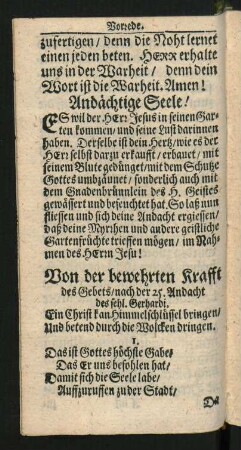 Vorrede.
zufertigen/ denn die Noht lernet
einen jeden beten. HERR erhalte
uns in der Warheit/ denn dein
Wort ist die Warheit. Amen!
Andächtige Seele/
ES wil der HErr Jesus in seinen Gar-
ten kommen/ und seine Lust darinnen
haben. Derselbe ist dein Hertz/ wie es der
HErr selbst darzu erkaufft/ erbauet/ mit
seinem Blute gedünget/ mit dem Schutze
Gottes umbzäunet/ sonderlich auch mit
dem Gnadenbrünnlein des H. Geistes
gewässert und befeuchtet hat. So laß nun
fliessen und sich deine Andacht ergiessen/
daß deine Myrrhen und andere geistliche
Gartenfrüchte trieffen mögen/ im Nah-
men des HErrn Jesu!
Von der bewehrten Krafft
des Gebets/ nach der 25. Andacht
des sehl. Gerhardi.
Ein Christ kan Himmelschlüssel bringen/
Und betend durch die Wolcken dringen.
1.
Das ist Gottes höchste Gabe/
Das Er uns befohlen hat/
Damit sich die Seele labe/
Auffzuruffen zu der Stadt/
Da